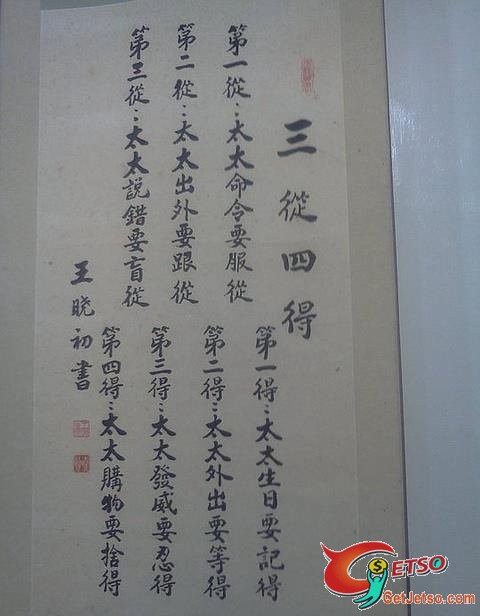 三從四得
第一從：太太命令要服從
第二從：太太出外要跟從
第三從：太太說錯要盲從
第一得：太太生日要記得
第二得：太太外出要等得
第三得：太太發威要忍得
第四得：太太購物要捨得
王晓初書
GETSO
GetJetso.com